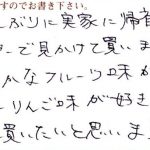 すのでお書き下さい。
しぶりに実家に帰省
ターで見かけて買いま
かなフルーツ味が
りんご味が好き
買いたいと思いま